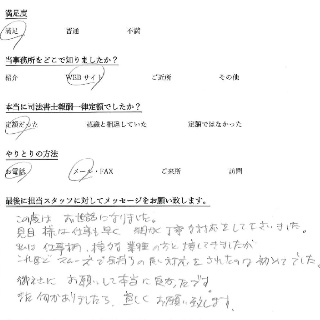 満足度
満足 普通 不満
当事務所をどこで知りましたか？
紹介 WEBサイト ご近所 その他
本当に司法書士報酬一律定額でしたか？
定額だった 認識と相違していた 定額ではなかった
やりとりの方法
お電話 メール・FAX ご来所 訪問
最後に担当スタッフに対してメッセージをお願い致します。
この度は お世話になりました。
様は仕事も早く 細かく丁寧な対応をして下さいました。
私は仕事柄、様々な業種の方と接してきましたが
これまでスムーズで気持ちの良い対応をされたのは初めてでした。
御社に お願いして本当に良かったです。
又何かありましたら、宜しく お願い致します。